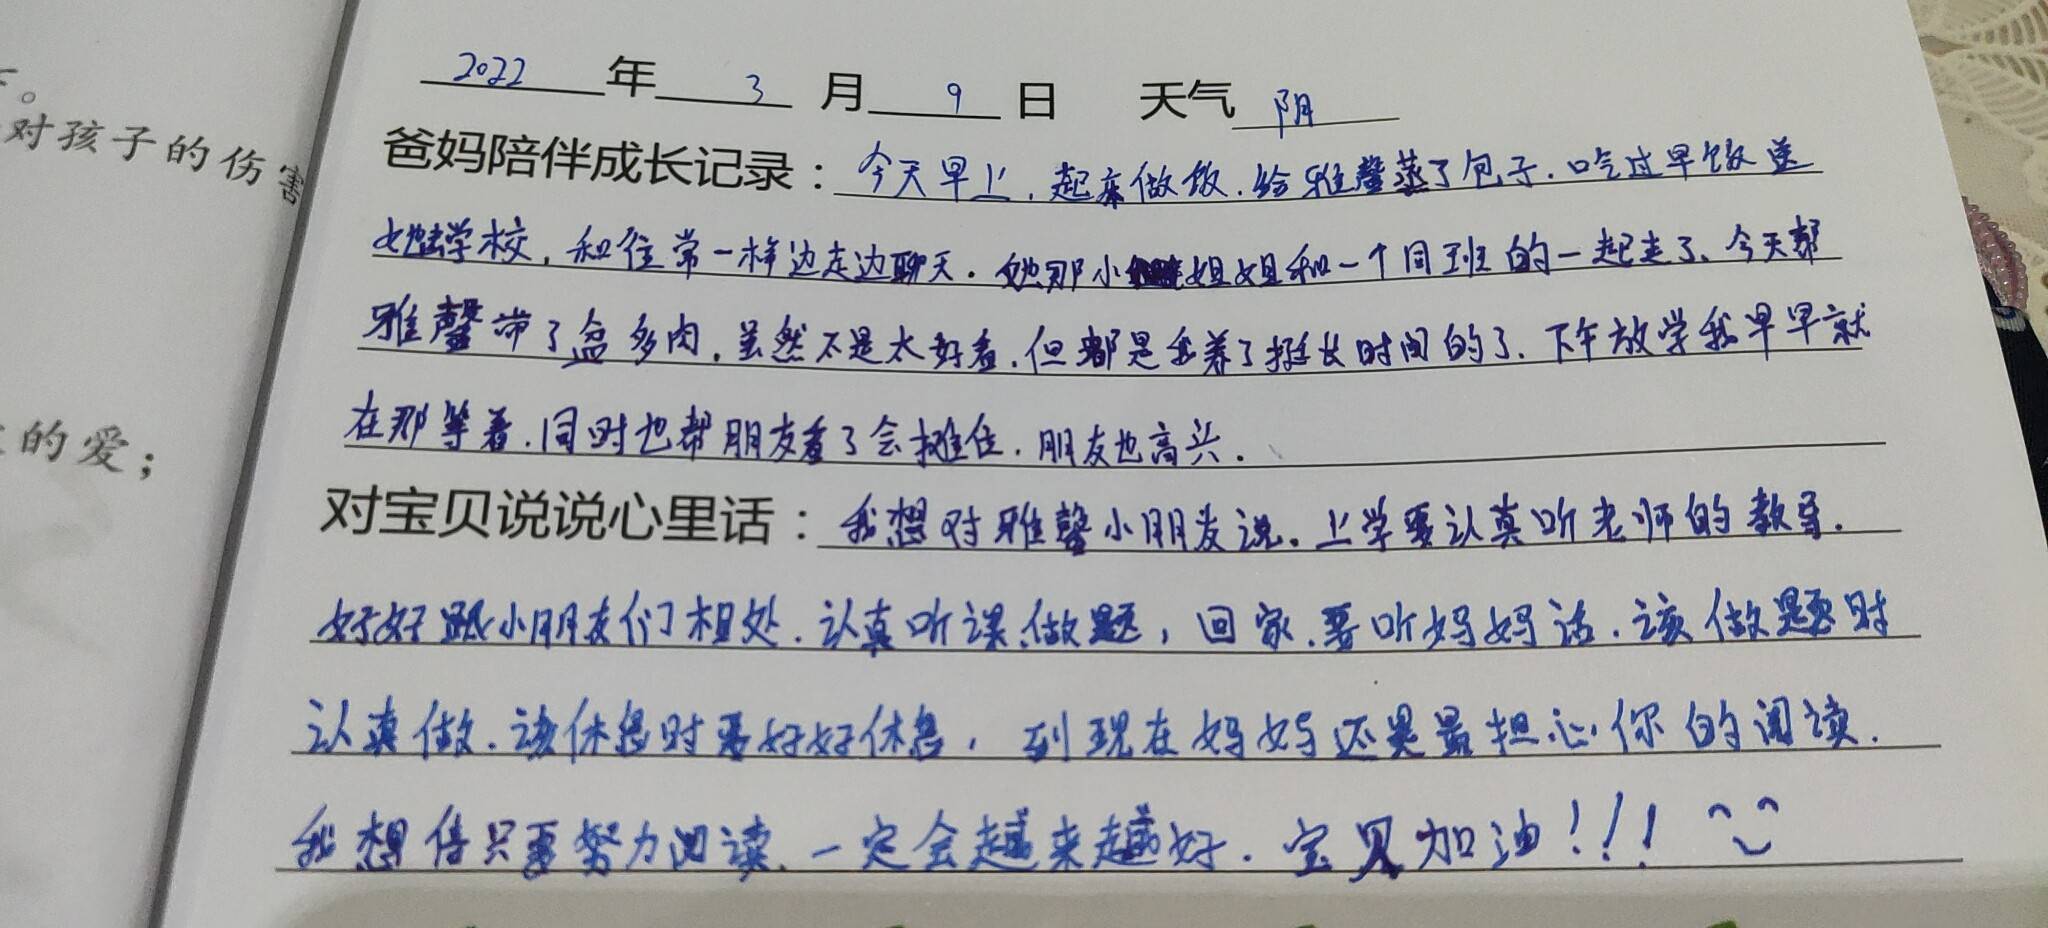 下。
对孩子的伤害
的爱；
2022年 3 月 9 日 天气 阴
爸妈陪伴成长记录：今天早上，起来做饭，给雅馨蒸了包子，吃过早饭送
她去学校，和往常一样边走边聊天。她那小姐姐和一个同班的一起走了、今天帮
雅馨带了盆多肉，虽然不是太好看，但都是我养了挺长时间的了、下午放学我早早就
在那等着，同时也帮朋友看了会摊位，朋友也高兴。
对宝贝说说心里话：我想对雅馨小朋友说。上学要认真听老师的教导，
好好跟小朋友们相处，认真听课，做题，回家，要听妈妈话，该做题时
认真做，该休息时要好好休息，到现在妈妈还是最担心你的阅读，
我想信只要努力阅读，一定会越来越好，宝贝加油！！！